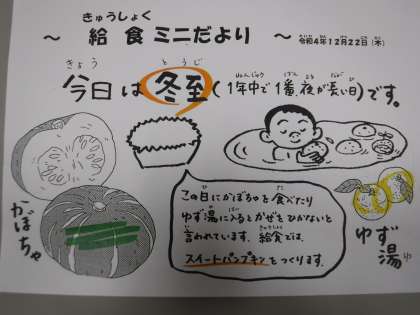 きゅうしょく
～ 給食ミニだより ～ 令和4年12月22日(木)
きょう とうじ ねんじゅう ばん よる なが ひ
今日は冬至(1年中で1番、夜が長い日)です。
かぼちゃ
この日にかぼちゃを食べたり
ゆず湯に入るとかぜをひかないと
言われています。給食では、
スイートパンプキンをつくります。
ゆず湯